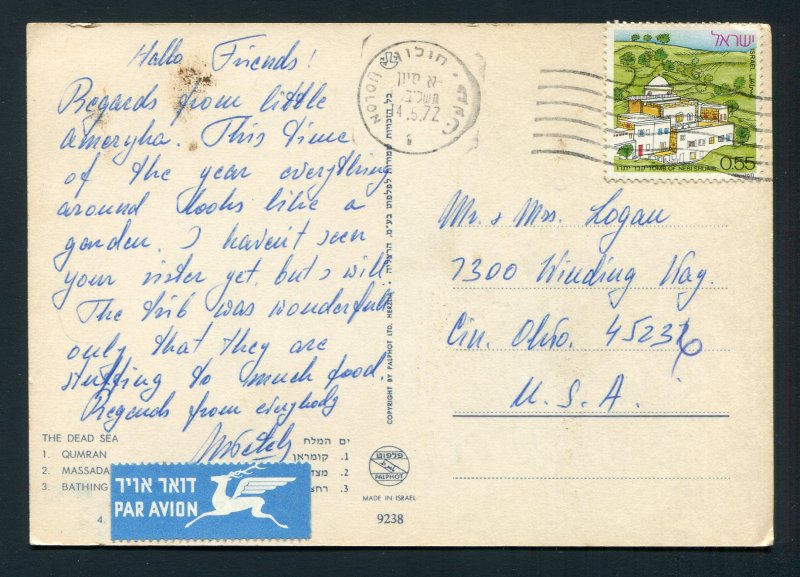 Hallo Friends!
Regards from little
ameryka. This time
of the year everything
around looks like a
garden. I haven't seen
your sister yet, but I will
The trib was wonderfull
only that they are
stuffing to much food.
Regends from everybody
THE DEAD SEA
1. QUMRAN
2. MASSADA
3. BATHING
4.
ים המלח
1. קומראן
2. מצד
3. רחצ
דואר אויר
PAR AVION
COPYRIGHT BY PALPHOT LTD. HERZLIA • כל הזכויות שמורות לפלפוט בע"מ, הרצליה
פלפוט
PALPHOT
MADE IN ISRAEL
9238
חולון
HOLON
א סיון
תשל"ב
14.5.72
ישראל
ISRAEL
0.55
קבר יתרו TOMB OF NEBI SHUAIB
Mr. & Mrs. Logan
7300 Winding Way.
Cin. Ohio. 45236
U. S. A.